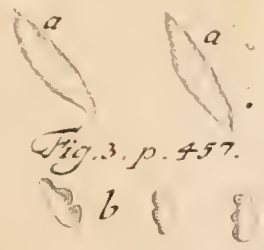 a a
Fig. 3. p. 457.
b